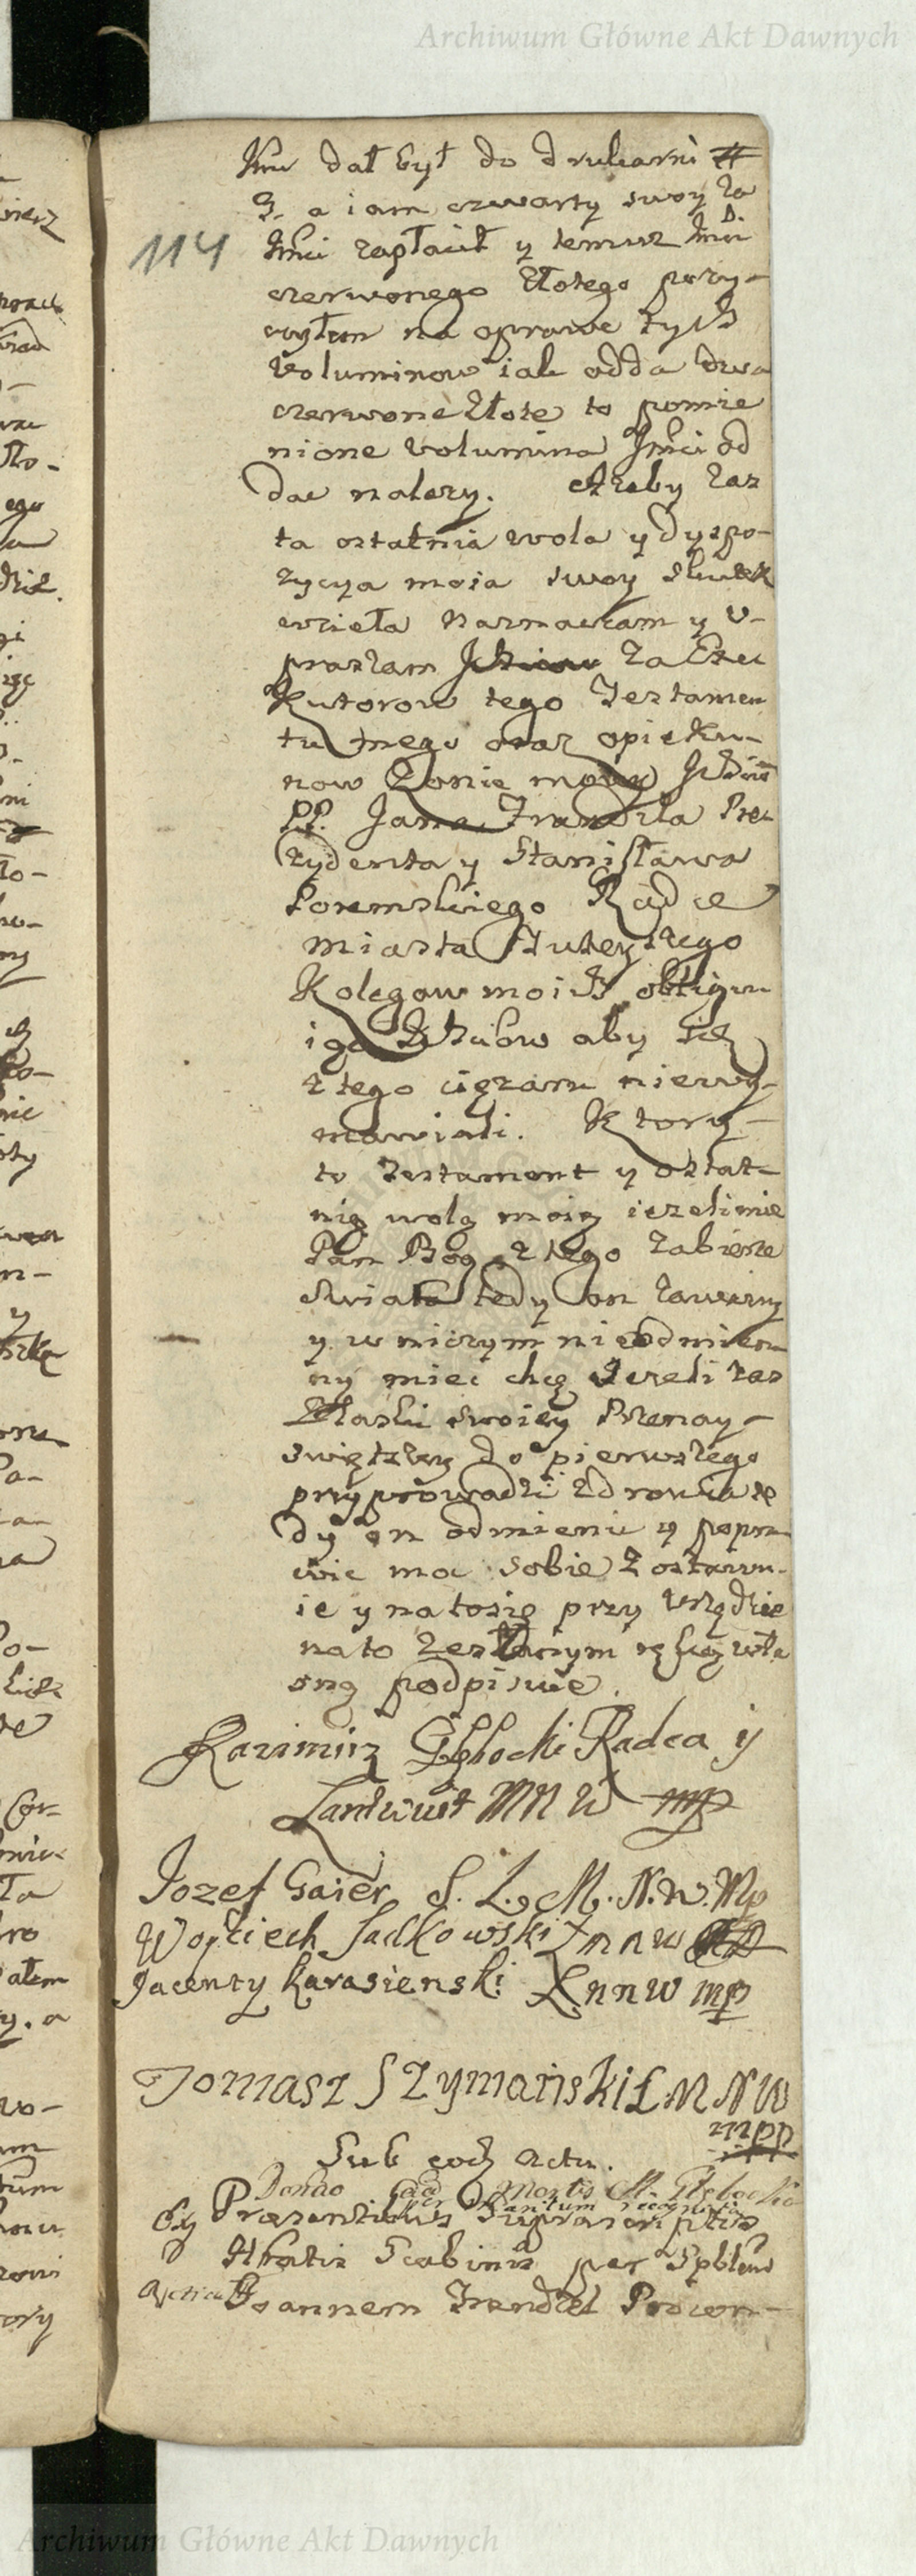 Archiwum Główne Akt Dawnych
dał był do drukarni #
3. a iam czwarty swoy za
114
Jmci zapłacił y temusz Jmci
czerwonego złotego pozy-
czyłem na oprawe tych
Voluminow iak odda dwa
czerwone złote to pomie
nione volumina Jmci od
dac nalezy. Azeby zas
ta ostatnia wola y dyspo-
zycya moia swoy skutek
wzieła naznaczam y u-
praszam za Exe
kutorow tego Testamen
tu mego oraz opieku-
now Zonie moiey
PP. Jana Frandzla Prez
zydenta y Stanisława
Poremskiego Radce
miasta Tuteyszego
Kolegow moich obligu
iąc aby się
z tego cięzaru niewy-
mawiali. Ktory-
to Testament y ostat-
nią wolą moią iezelimie
Pan Bog z tego zabierze
swiata tedy on zawarty
y w niczym nieodmien
ny miec chcę Jezeli zas
z łaski swoiey Przenay-
swiętszey do pierwszego
przyprowadzi zdrowia te
dy on odmienic y popra
wic moc sobie zostawu-
ie y na to się przy Urzędzie
na to zesłanym ręką wła
sną podpisuie.
Kazimirz Głębocki Radca y
Lantwuit M N W mp
Jozef Gaier S. L. M. N. W. Mp
Woyciech Sadkowski Ł n n w
Jacenty Karasienski Ł. n n W mp
Tomasz SZymański Ł M N W
mpp
Sub eod Actu.
Mortis M. Głębocki
Ex Praesentibus Suprascriptis
Scabinis per Spblem
Joannem Frandzel Procon-
Archiwum Główne Akt Dawnych